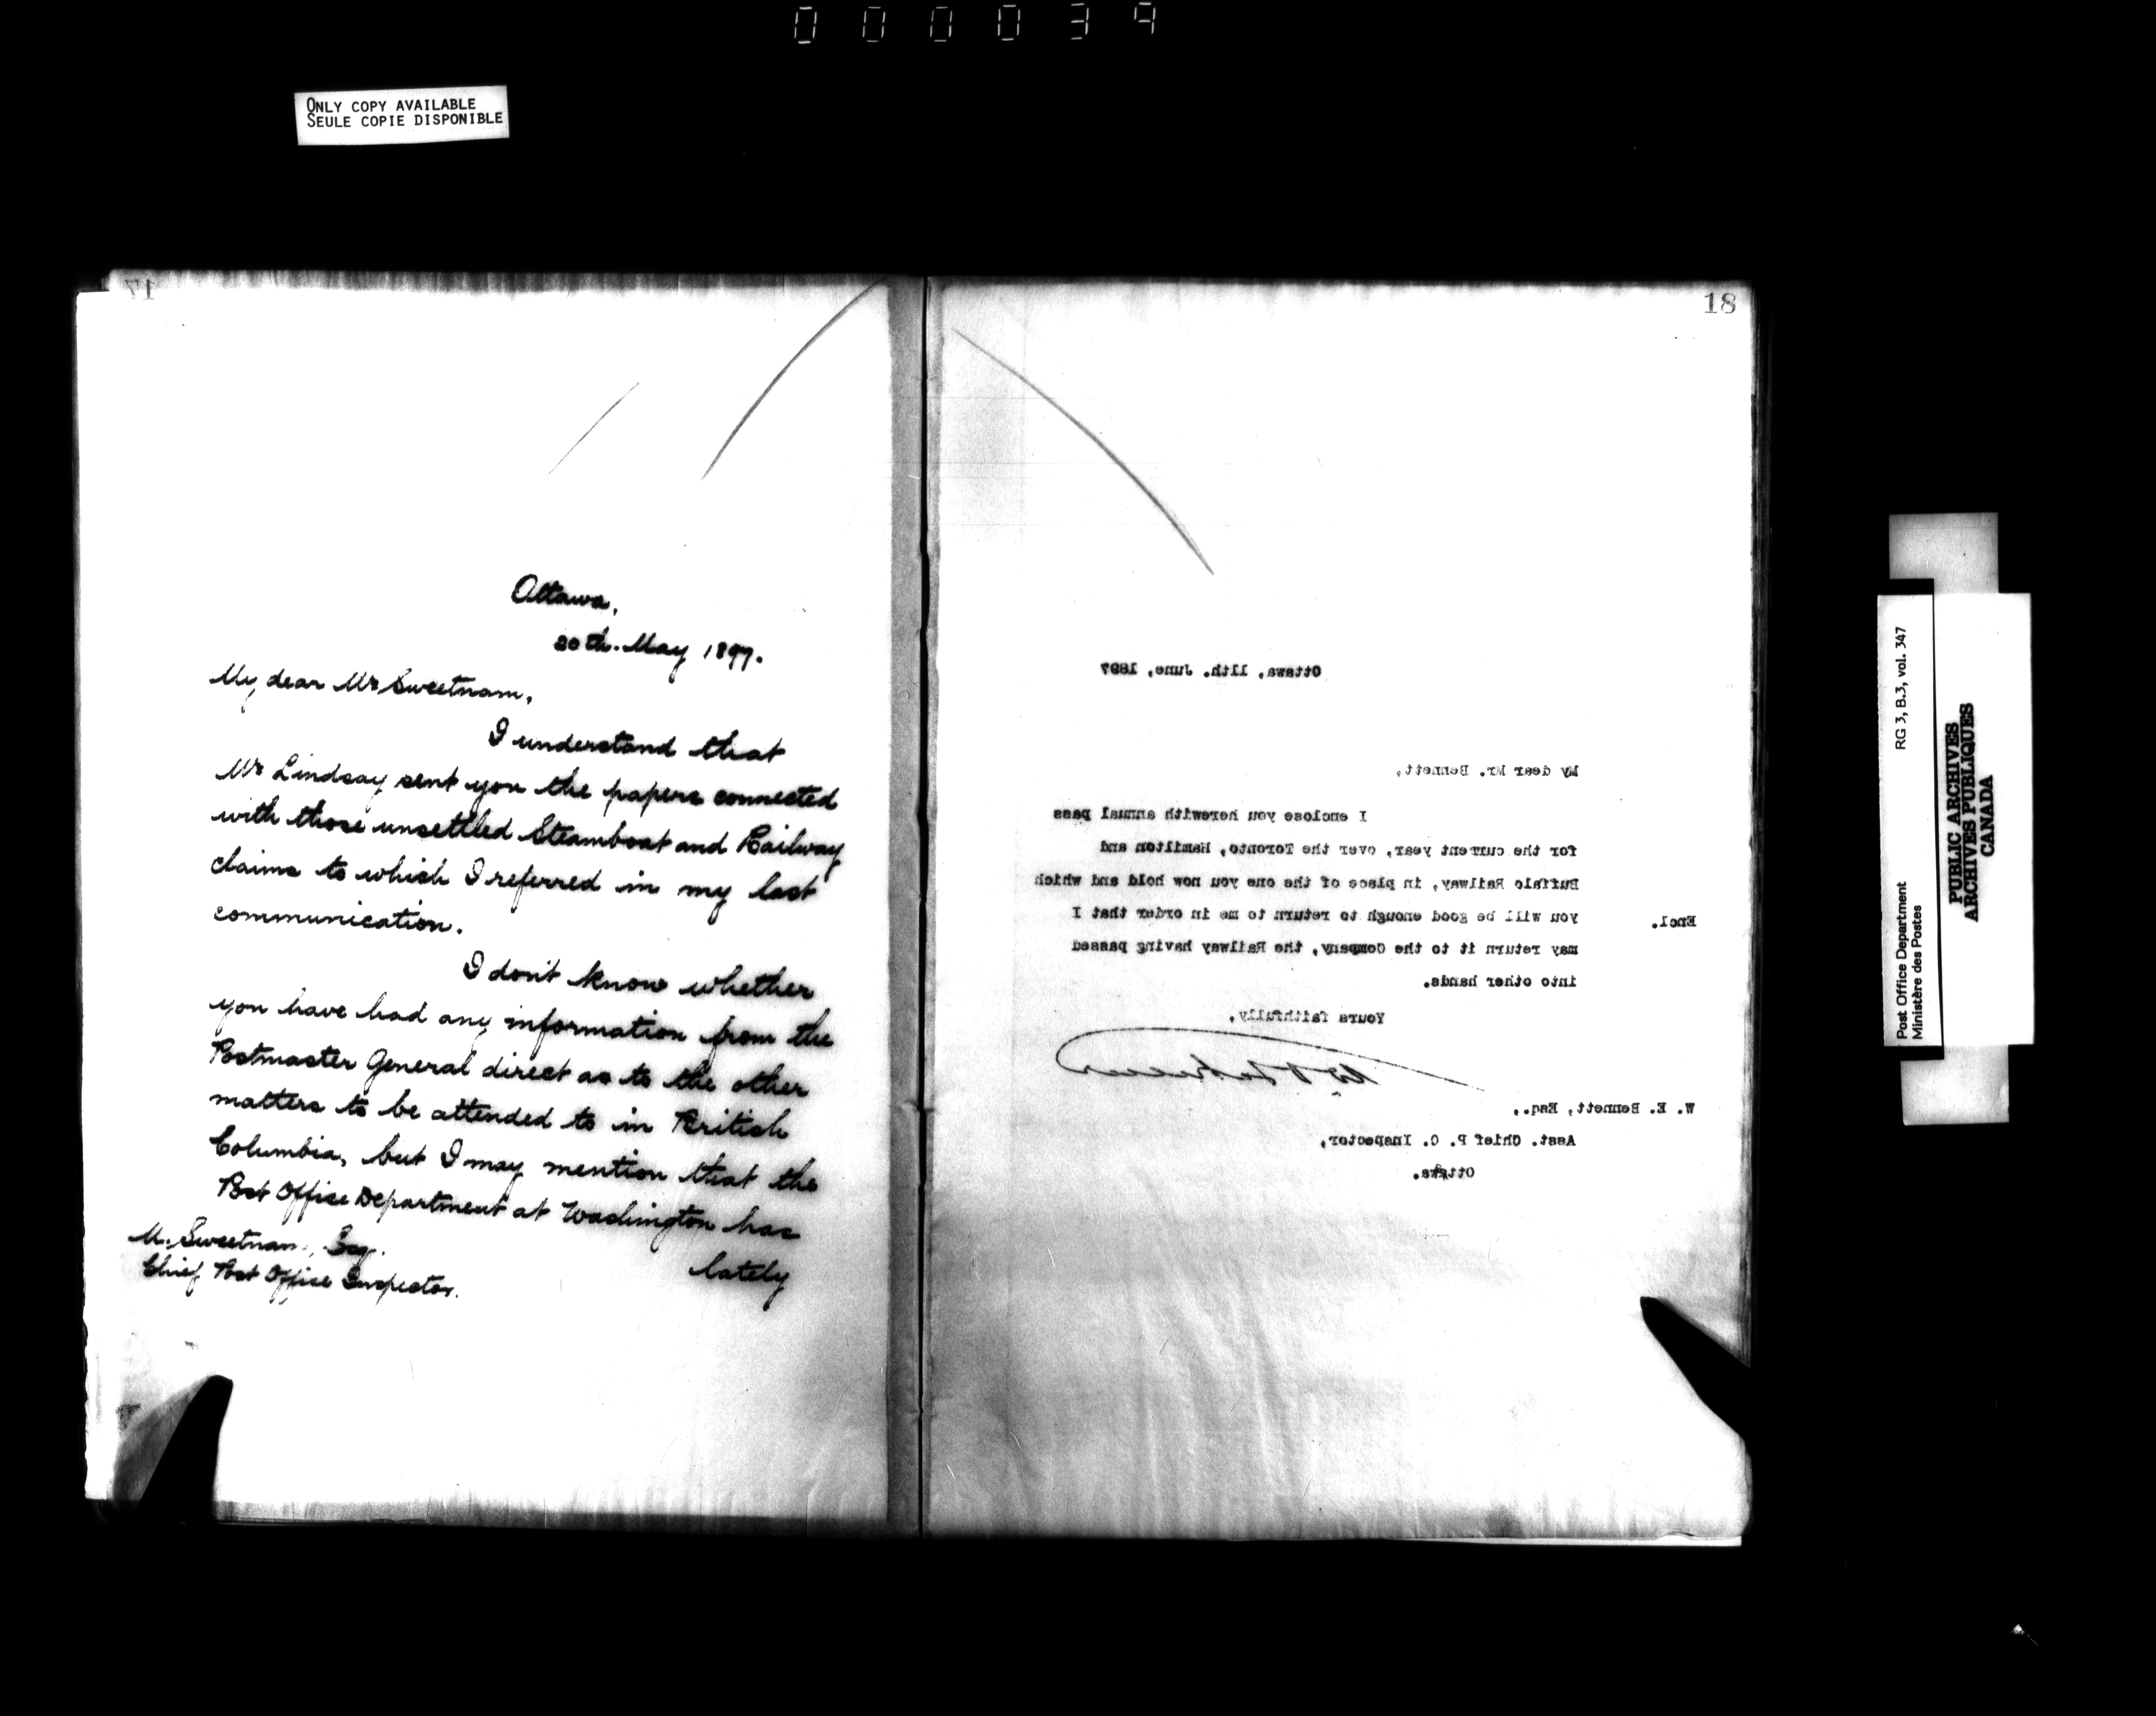 000039
ONLY COPY AVAILABLE
SEULE COPIE DISPONIBLE
17
Ottawa,
20th. May 1897.
My dear Mr Sweetnam,
I understand that
Mr Lindsay sent you the papers connected
with those unsettled Steamboat and Railway
claims to which I referred in my last
communication.
I don't know whether
you have had any information from the
Postmaster General direct as to the other
matters to be attended to in British
Columbia, but I may mention that the
Post Office Department at Washington has
lately
M. Sweetnam, Esq.
Chief Post Office Inspector.
18
Ottawa, 11th. June, 1897
My dear Mr. Bennett,
I enclose you herewith annual pass
for the current year, over the Toronto, Hamilton and
Buffalo Railway, in place of the one you now hold and which
Encl. you will be good enough to return to me in order that I
may return it to the Company, the Railway having passed
into other hands.
Yours faithfully,
W. E. Bennett, Esq.,
Asst. Chief P. O. Inspector,
Ottawa.
Post Office Department
Ministère des Postes
RG 3, B.3, vol. 347
PUBLIC ARCHIVES
ARCHIVES PUBLIQUES
CANADA